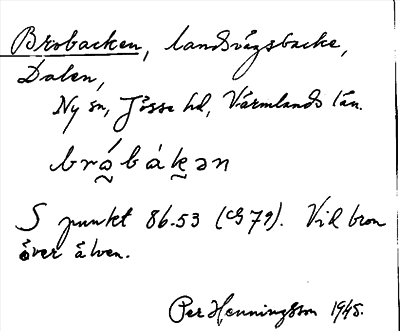 Brobacken, landsvägsbacke,
Dalen,
Ny sn, Jösse hd, Värmlands län.
bró̰bàk̰ən
S punkt 86.53 (CG 79). Vid bron
över älven.
Per Henningsson 1945.